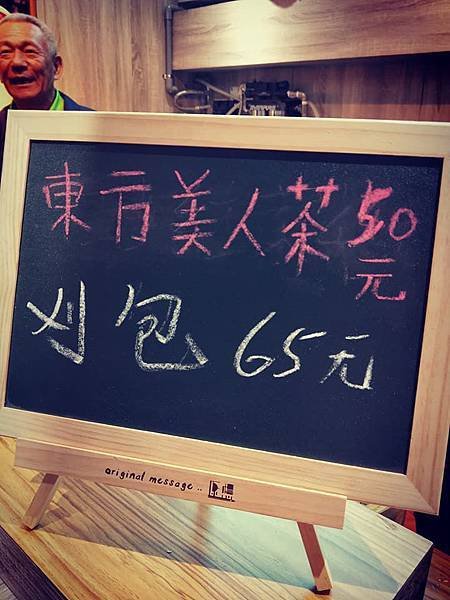 東方美人茶 50元
刈包 65元
original message ..